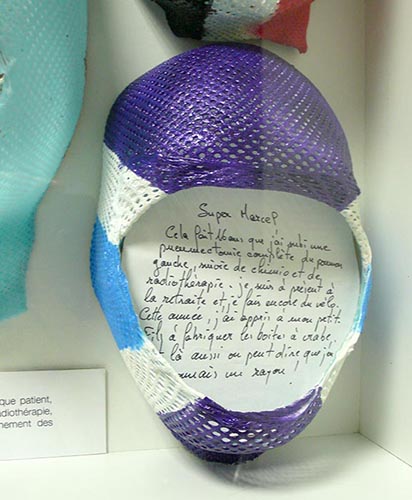 Super Marcel
Cela fait 16 ans que j'ai subi une
pneumectomie complète du poumon
gauche, suivie de chimio et de
radiothérapie. je suis à présent à
la retraite et je fais encore du vélo.
Cette année, j'ai appris à mon petit
Fils à fabriquer les boîtes à crabe
là aussi on peut dire que j'ai
un rayon !
que patient,
adiothérapie,
nement des